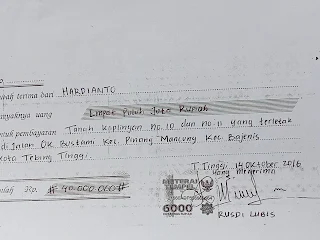 No.
udah terima dari HARDIANTO
anyaknya uang Empat Puluh Juta Rupiah
ntuk pembayaran Tanah Kaplingan No.10 dan no.11 yang terletak
di Jalan OK. Bustami Kel. Pinang Mancung Kec. Bajenis
Kota Tebing Tinggi.
T. Tinggi, 14 Oktober 2016
Yang menerima
mlah Rp. # 40.000.000 #
METERAI
TEMPEL
6000
ENAM RIBU RUPIAH
RUSDI LUBIS